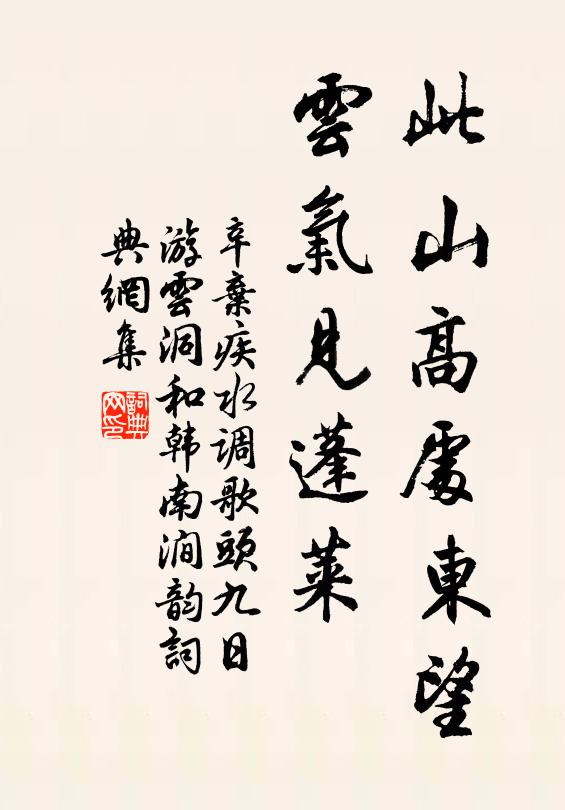 此山高處東望
雲氣見蓬萊
辛棄疾水调歌頭九日
游雲洞和韩南澗韵詞
典網集
詞典网印